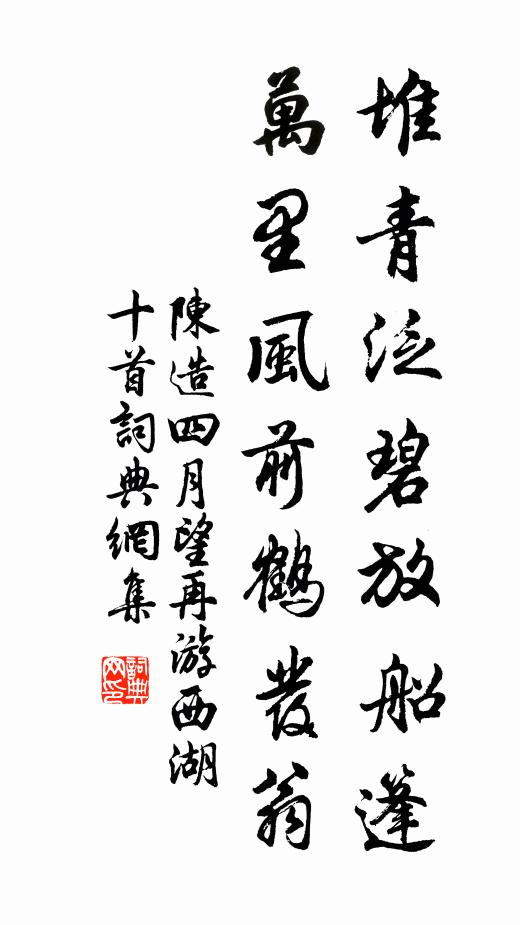 堆青泛碧放船篷
萬里風前鶴發翁
陳造四月望再游西湖
十首詞典網集
詞典网印